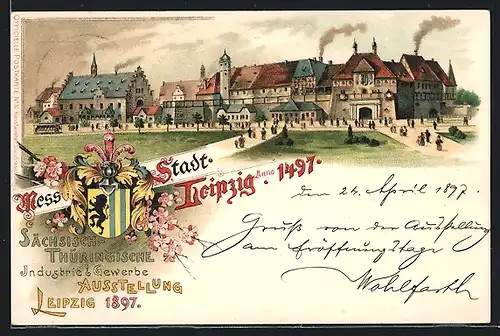 OFFICIELLE POSTKARTE Nº
Mess
Stadt.
Leipzig. Anno 1497.
den 24. April 1897.
Gruß von der Ausstellung
am Eröffnungstage
Wohlfarth
SÄCHSISCH-
THÜRINGISCHE
Industrie & Gewerbe
AUSSTELLUNG
LEIPZIG 1897.